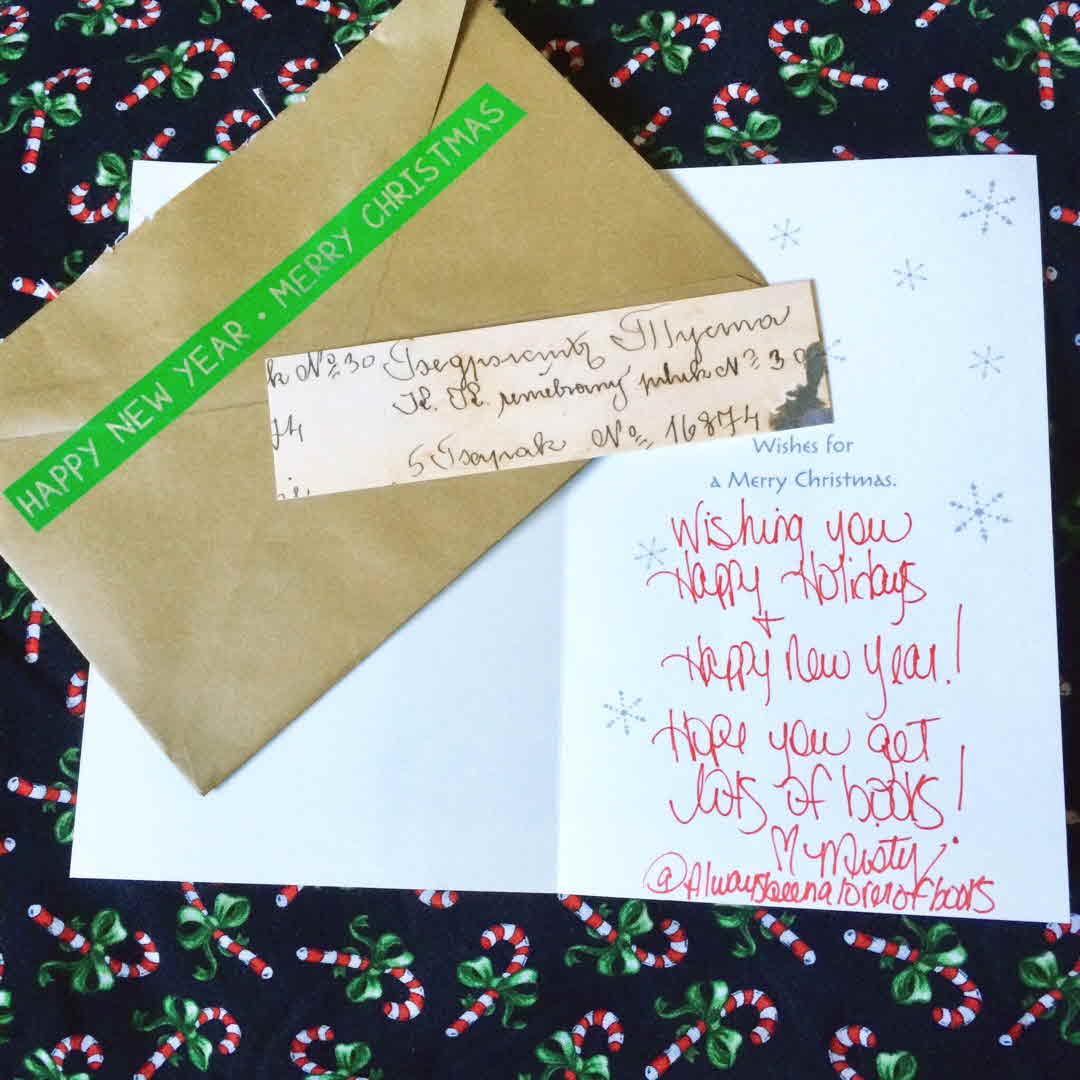 HAPPY NEW YEAR • MERRY CHRISTMAS
k № 30
К. К. pułk № 30
74
5 № 16874
Wishes for
a Merry Christmas.
Wishing you
Happy Holidays
+
Happy New Year!
Hope you get
lots of books!
♡ Misty
@Alwaysbeenaloverofbooks